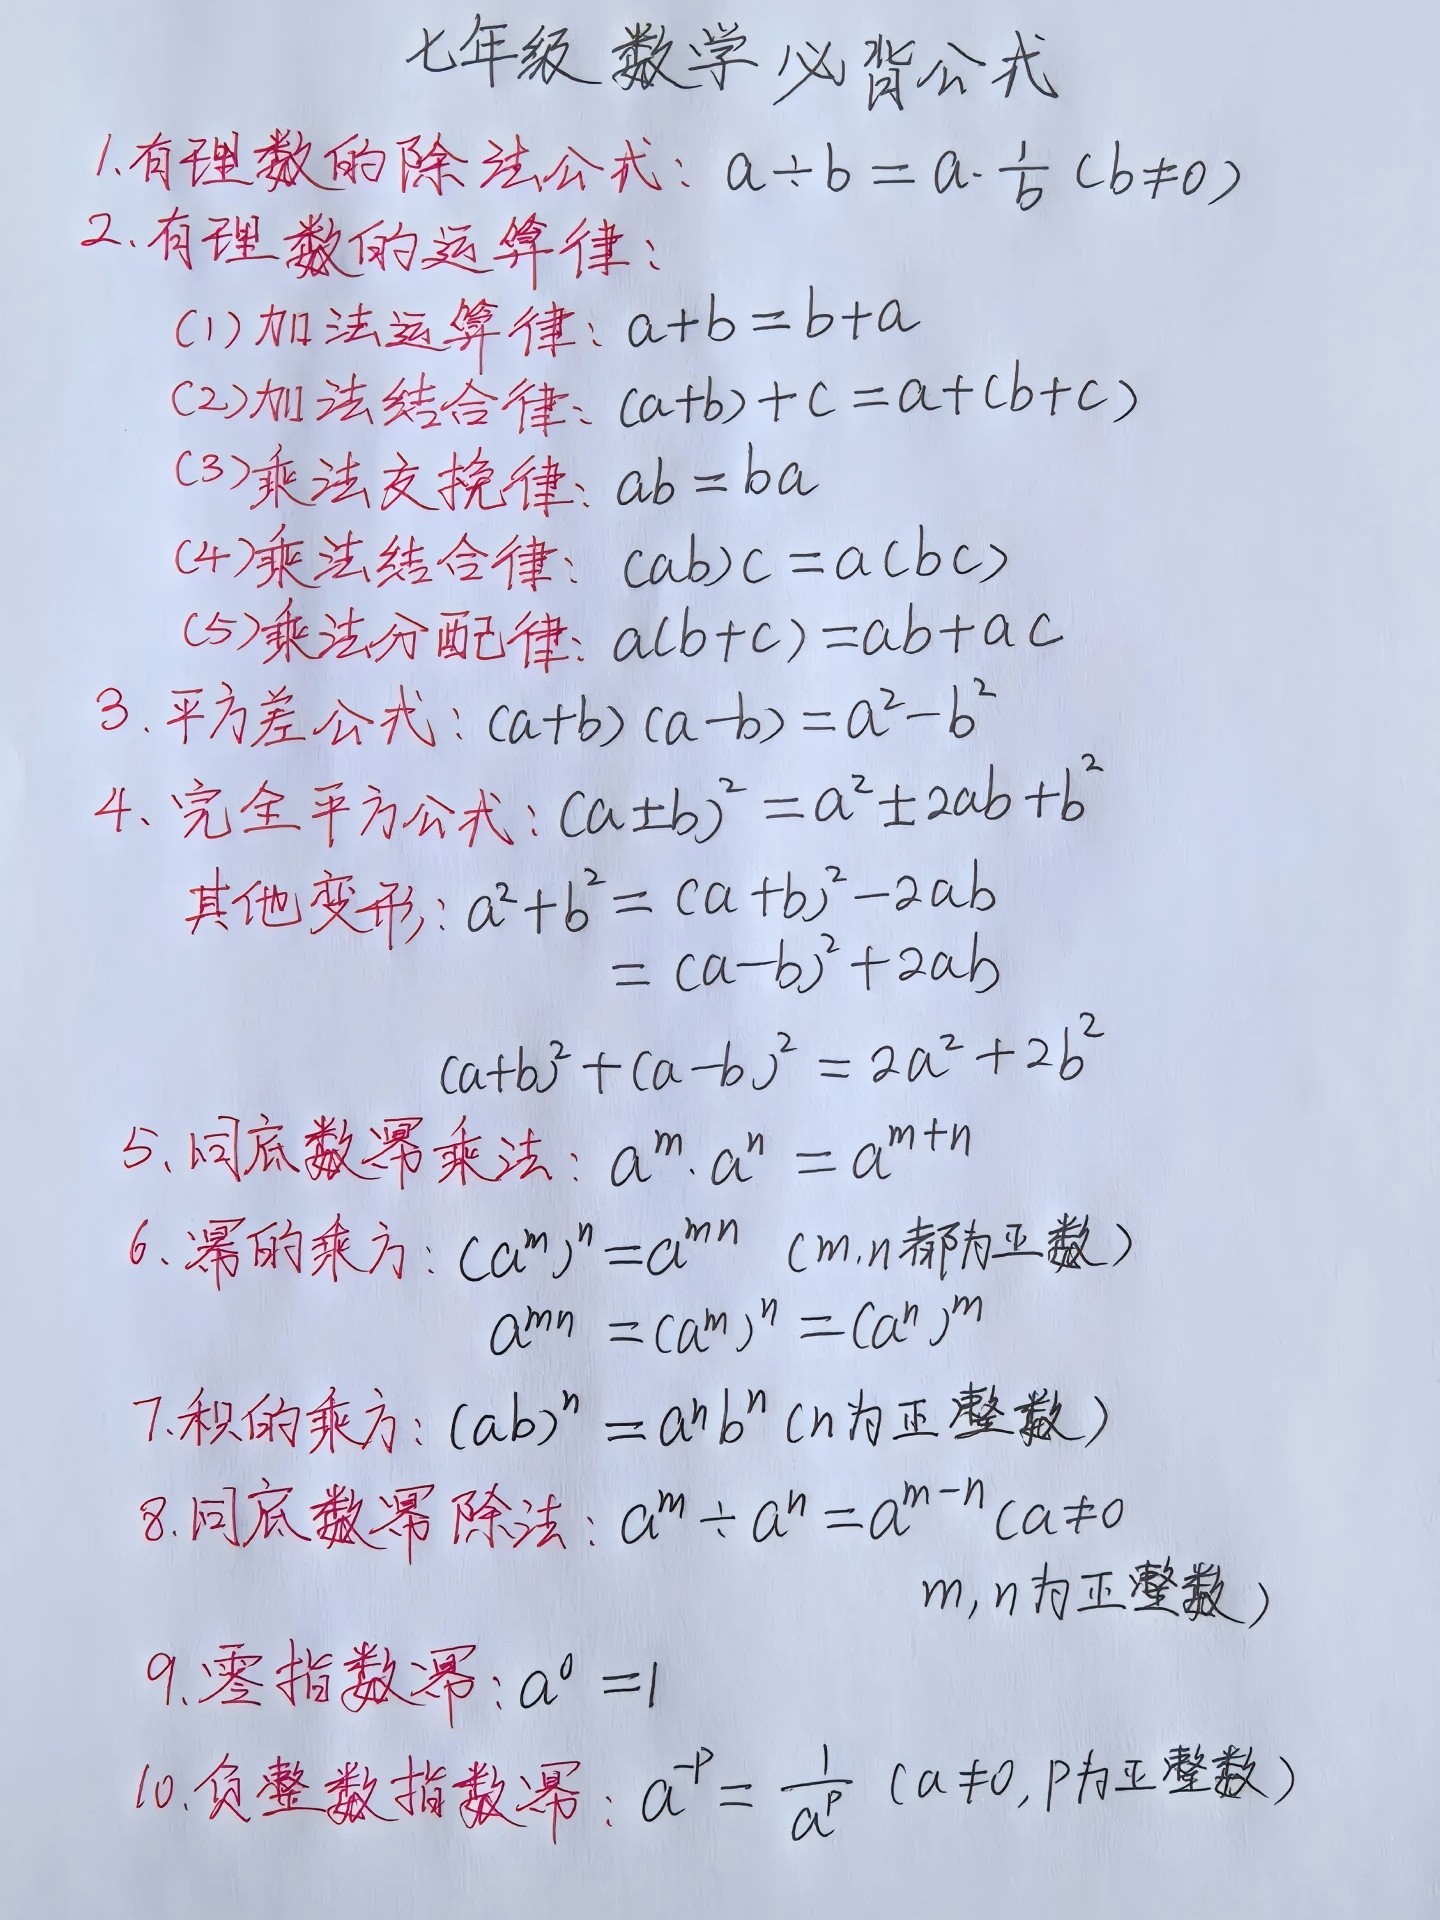 七年级数学必背公式
1.有理数的除法公式：a÷b=a·1/b（b≠0）
2.有理数的运算律：
（1）加法运算律：a+b=b+a
（2）加法结合律：(a+b)+c=a+(b+c)
（3）乘法交换律：ab=ba
（4）乘法结合律：(ab)c=a(bc)
（5）乘法分配律：a(b+c)=ab+ac
3.平方差公式：(a+b)(a-b)=a²-b²
4、完全平方公式：(a±b)²=a²±2ab+b²
其他变形：a²+b²=(a+b)²-2ab
=(a-b)²+2ab
(a+b)²+(a-b)²=2a²+2b²
5、同底数幂乘法：aᵐ·aⁿ=aᵐ⁺ⁿ
6、幂的乘方：(aᵐ)ⁿ=aᵐⁿ（m,n都为正数）
aᵐⁿ=(aᵐ)ⁿ=(aⁿ)ᵐ
7.积的乘方：(ab)ⁿ=aⁿbⁿ（n为正整数）
8.同底数幂除法：aᵐ÷aⁿ=aᵐ⁻ⁿ（a≠0
m,n为正整数）
9.零指数幂：a⁰=1
10.负整数指数幂：a⁻ᵖ=1/aᵖ（a≠0,p为正整数）